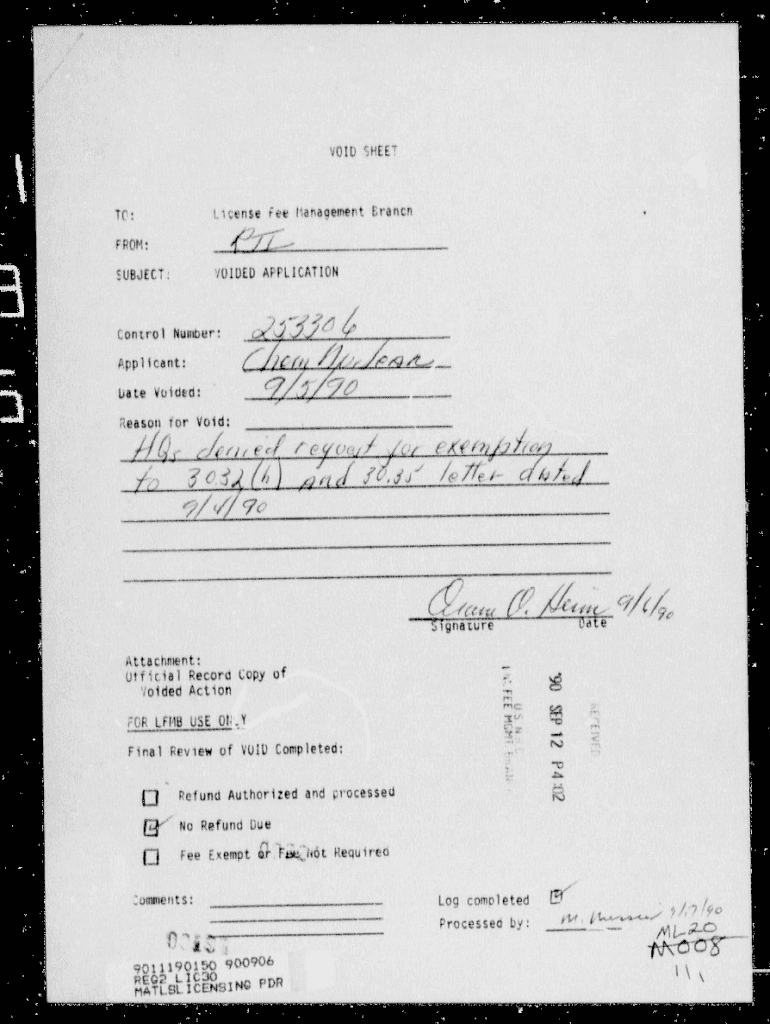 VOID SHEET
TO: License Fee Management Branch
FROM:
SUBJECT: VOIDED APPLICATION
Control Number: 253306
Applicant: Chem Nuclear
Date Voided: 9/5/90
Reason for Void:
HQs denied request for exemption
to 30.32(h) and 30.35 letter dated
9/4/90
9/6/90
Signature Date
Attachment:
Official Record Copy of
Voided Action
FOR LFMB USE ONLY
Final Review of VOID Completed:
Refund Authorized and processed
No Refund Due
Fee Exempt or Fee Not Required
Comments:
Log completed
Processed by: M. 9/17/90
RECEIVED
'90 SEP 12 P4:02
U.S. N
FEE MGMT
ML20
M008
9011190150 900906
REG2 LIC30
MATLSLICENSING PDR